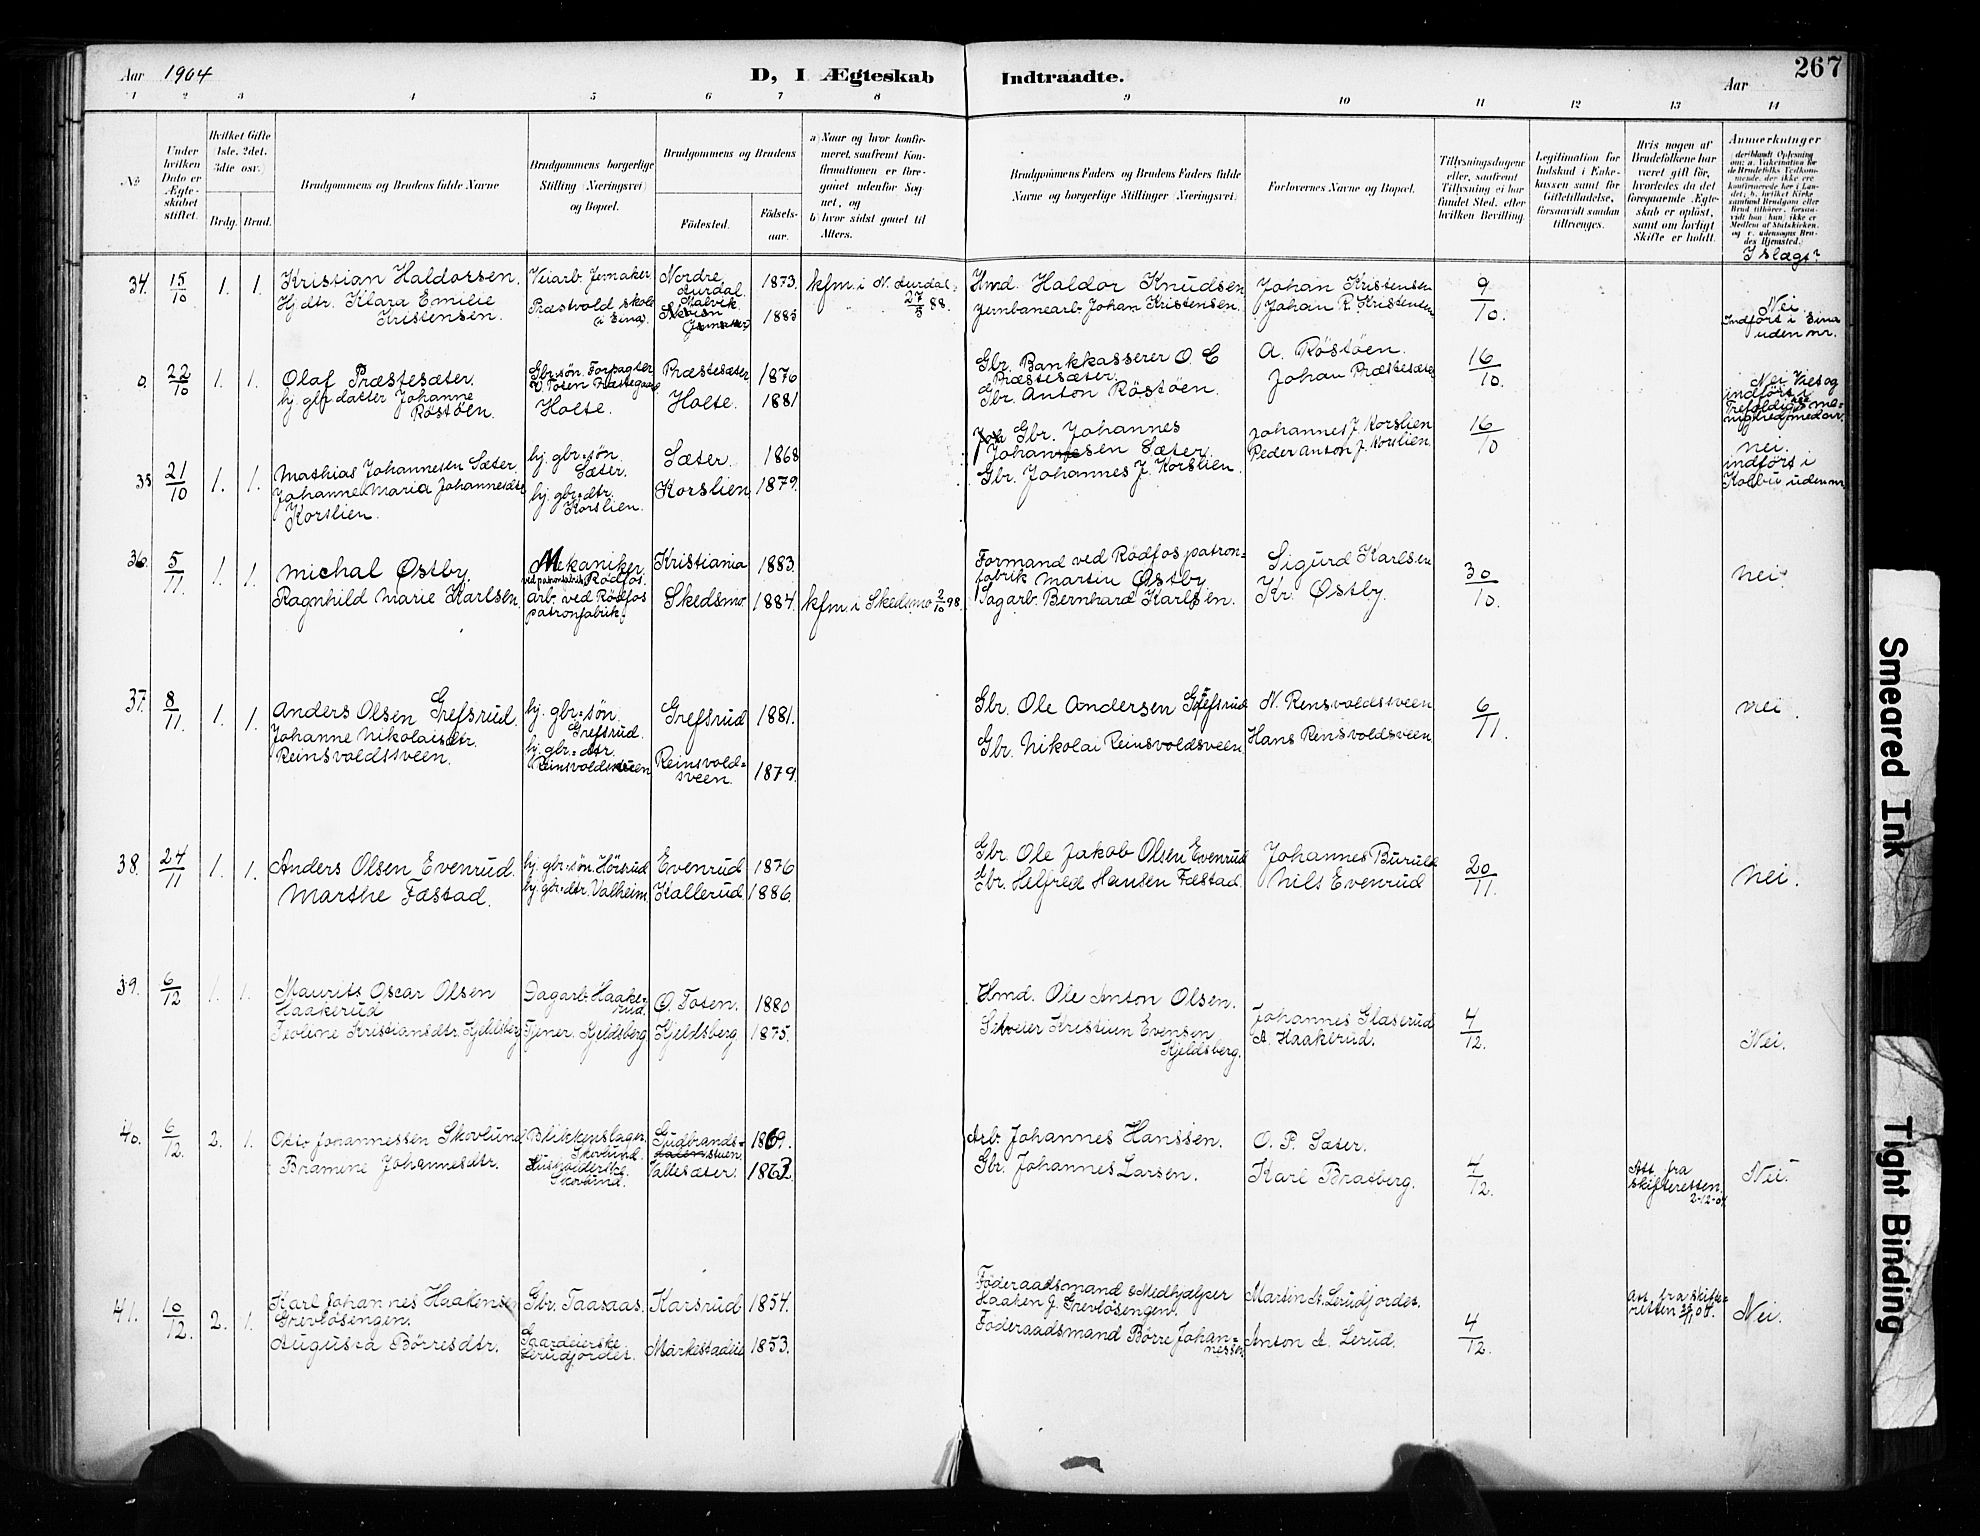 Aar 1904
D, I Ægteskab Indtraadte.
Aar
267
1 2 3 4 5 6 7 8 9 10 11 12 13 14
No.
Under hvilken Dato er Ægteskabet stiftet.
Hvilket Gifte 1ste, 2det, 3die osv.
Brdg. Brud.
Brudgommens og Brudens fulde Navne
Brudgommens borgerlige Stilling (Næringsvei) og Bopæl.
Brudgommens og Brudens
Födested.
Födselsaar.
a) Naar og hvor konfirmeret, saafremt Konfirmationen er foregaaet udenfor Sognet, og
b) hvor sidst gaaet til Alters.
Brudgommens Faders og Brudens Faders fulde Navne og borgerlige Stillinger (Næringsvei).
Forlovernes Navne og Bopæl.
Tillysningsdagene eller, saafremt Tillysning ei har fundet Sted, efter hvilken Bevilling.
Legitimation for Indskud i Enkekassen samt for Giftetilladelse, forsaavidt saadan tiltrænges.
Hvis nogen af Brudefolkene har været gift før, hvorledes da det foregaaende Ægteskab er opløst, samt om lovligt Skifte er holdt.
Anmerkninger
I slægt?
34. 15/10 1. 1. Kristian Haldorsen. Veiarb. Jemaker Nordre Aurdal 1873. kfm i N. Aurdal 27/5 88. Hmd. Haldor Knudsen Johan Kristensen 9/10.
Hj. dtr. Klara Emilie Kristensen. Præstvold skole (i Eina). Malvik 1885 Jernbanearb. Johan Kristensen. Johan R. Kristensen Nei. Indført i Eina uden nr.
0. 22/10 1. 1. Olaf Præstesæter. Gbr.søn. Forpagter V. Toten Præstegaard Præstesæter 1876 Gbr. Bankkasserer O. C Præstesæter. A. Røstøen. 16/10.
hj. gbr datter Johanne Røstøen. Holte. Holte. 1881 Gbr. Anton Røstøen Johan Præstesæter Nei
35 21/10 1. 1. Mathias Johannesen Sæter. hj. gbr=søn Sæter. Sæter. 1868 Gbr. Johannes Johansen Sæter. Johannes J. Korslien 16/10
Johanne Maria Johannesdtr Korslien. hj. gbr=dtr. Korslien. Korslien 1879. Gbr. Johannes J. Korslien. Peder Anton J. Korslien. nei. indført i Kolbu uden nr
36. 5/11. 1. 1. Michal Østby. Mekaniker ved patronfabrik Rødfos. Kristiania 1883. Formand ved Rødfos patron=fabrik Martin Østby Sigurd Karlsen 30/10.
Ragnhild Marie Karlsen. arb. ved Rødfos patronfabrik. Skedsmo 1884. kfm i Skedsmo 2/10 98. Sagarb. Bernhard Karlsen. Kr. Østby. nei.
37. 8/11. 1. 1. Anders Olsen Grefsrud. hj. gbr=søn. Grefsrud. Grefsrud 1881. Gbr. Ole Andersen Grefsrud N. Rensvoldsveen 6/11.
Johanne Nikolaisdtr. Reinsvoldssveen. hj. gbr=dtr. Reinsvoldsveen Reinsvold=sveen. 1879. Gbr. Nikolai Reinsvoldsveen Hans Rensvoldsveen nei.
38. 24/11 1. 1. Anders Olsen Evenrud. hj. gbr=søn Hørsrud Evenrud 1876 Gbr. Ole Jakob Olsen Evenrud Johannes Burull 20/11.
Marthe Fæstad. hj. gbr=dtr. Valheim. Kallerud. 1886. Gbr. Helfred Hansen Fæstad. Nils Evenrud nei.
39. 6/12 1. 1. Maurits Oscar Olsen Haakerud Dagarb. Haake=rud. Ø. Toten. 1880 Hmd. Ole Anton Olsen. Johannes Glæserud 4/12.
Teoline Kristiansdtr. Kjeldsberg Tjener. Kjeldsberg Kjeldsberg 1875. Kristian Evensen Kjeldsberg. A. Haakerud. Nei.
40. 6/12. 2. 1. Otto Johannessen Skovlund Blikkenslager. Skovlund. Gudbrands=stuen. 1869. Arb. Johannes Hanssen. O. P. Sæter. 4/12.
Bramine Johannesdtr. Husholderske Skovlund. Vallesæter. 1863. Gbr. Johannes Larsen. Karl Bratberg. Att. fra skifteretten 2-12-04. Nei.
41. 10/12. 2. 1. Karl Johannes Haakensen Grevløsengen. Gbr. Taasaas. Karsrud 1854. Føderaadsmand & Medhjælper Haaken G. Grevløsengen. Martin A. Lerudjordet. 4/12. Att. fra skifte=retten Nei.
Augusta Børresdtr. Gaardeierske Lerudjordet. Markestadeie 1853. Føderaadsmand Børre Johan=nessen Anton A. Lerud.
Smeared Ink
Tight Binding